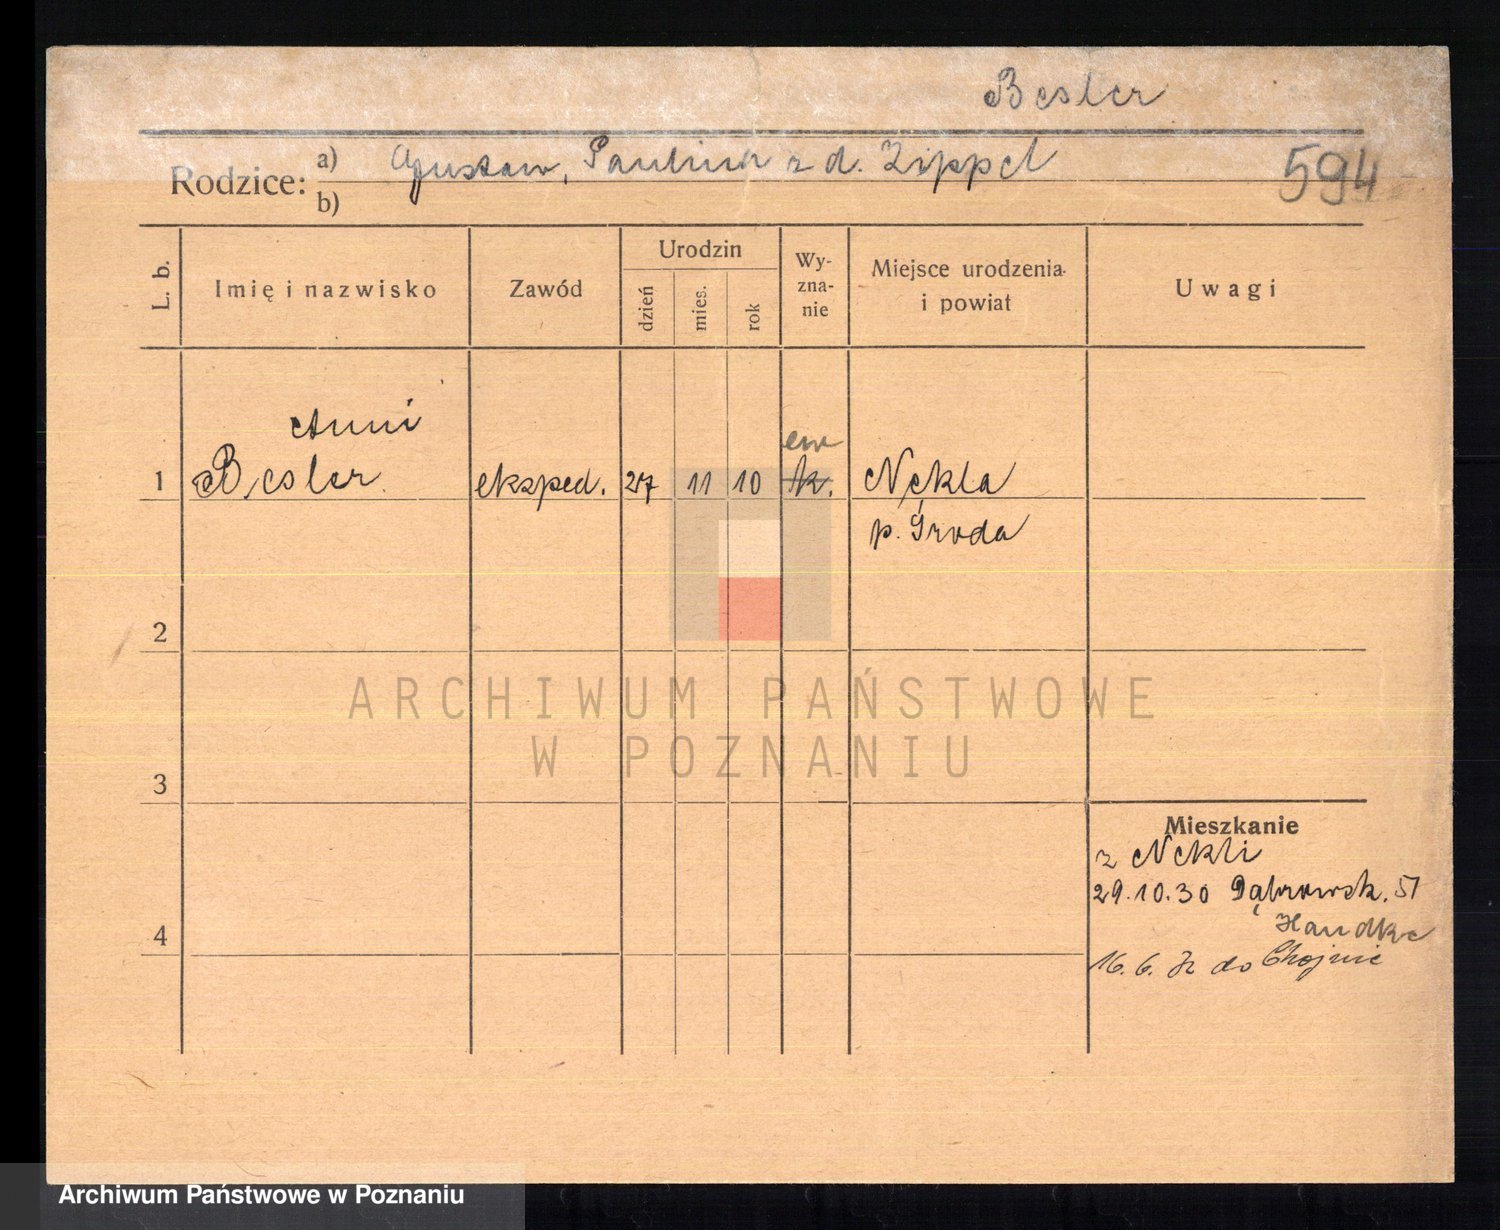 Besler
Rodzice: a) Gustaw, Paulina z d. Zippel
b)
594
L. b.
Imię i nazwisko
Zawód
Urodzin
dzień
mies.
rok
Wy-
zna-
nie
Miejsce urodzenia
i powiat
Uwagi
Anni
ew
1 Besler eksped. 27 11 10 k. Nekla
p. Środa
2
ARCHIWUM PAŃSTWOWE
W POZNANIU
3
Mieszkanie
z Nekli
29.10.30 Dąbrowsk. 51
Handke
4
16.6. do Chojnic
Archiwum Państwowe w Poznaniu